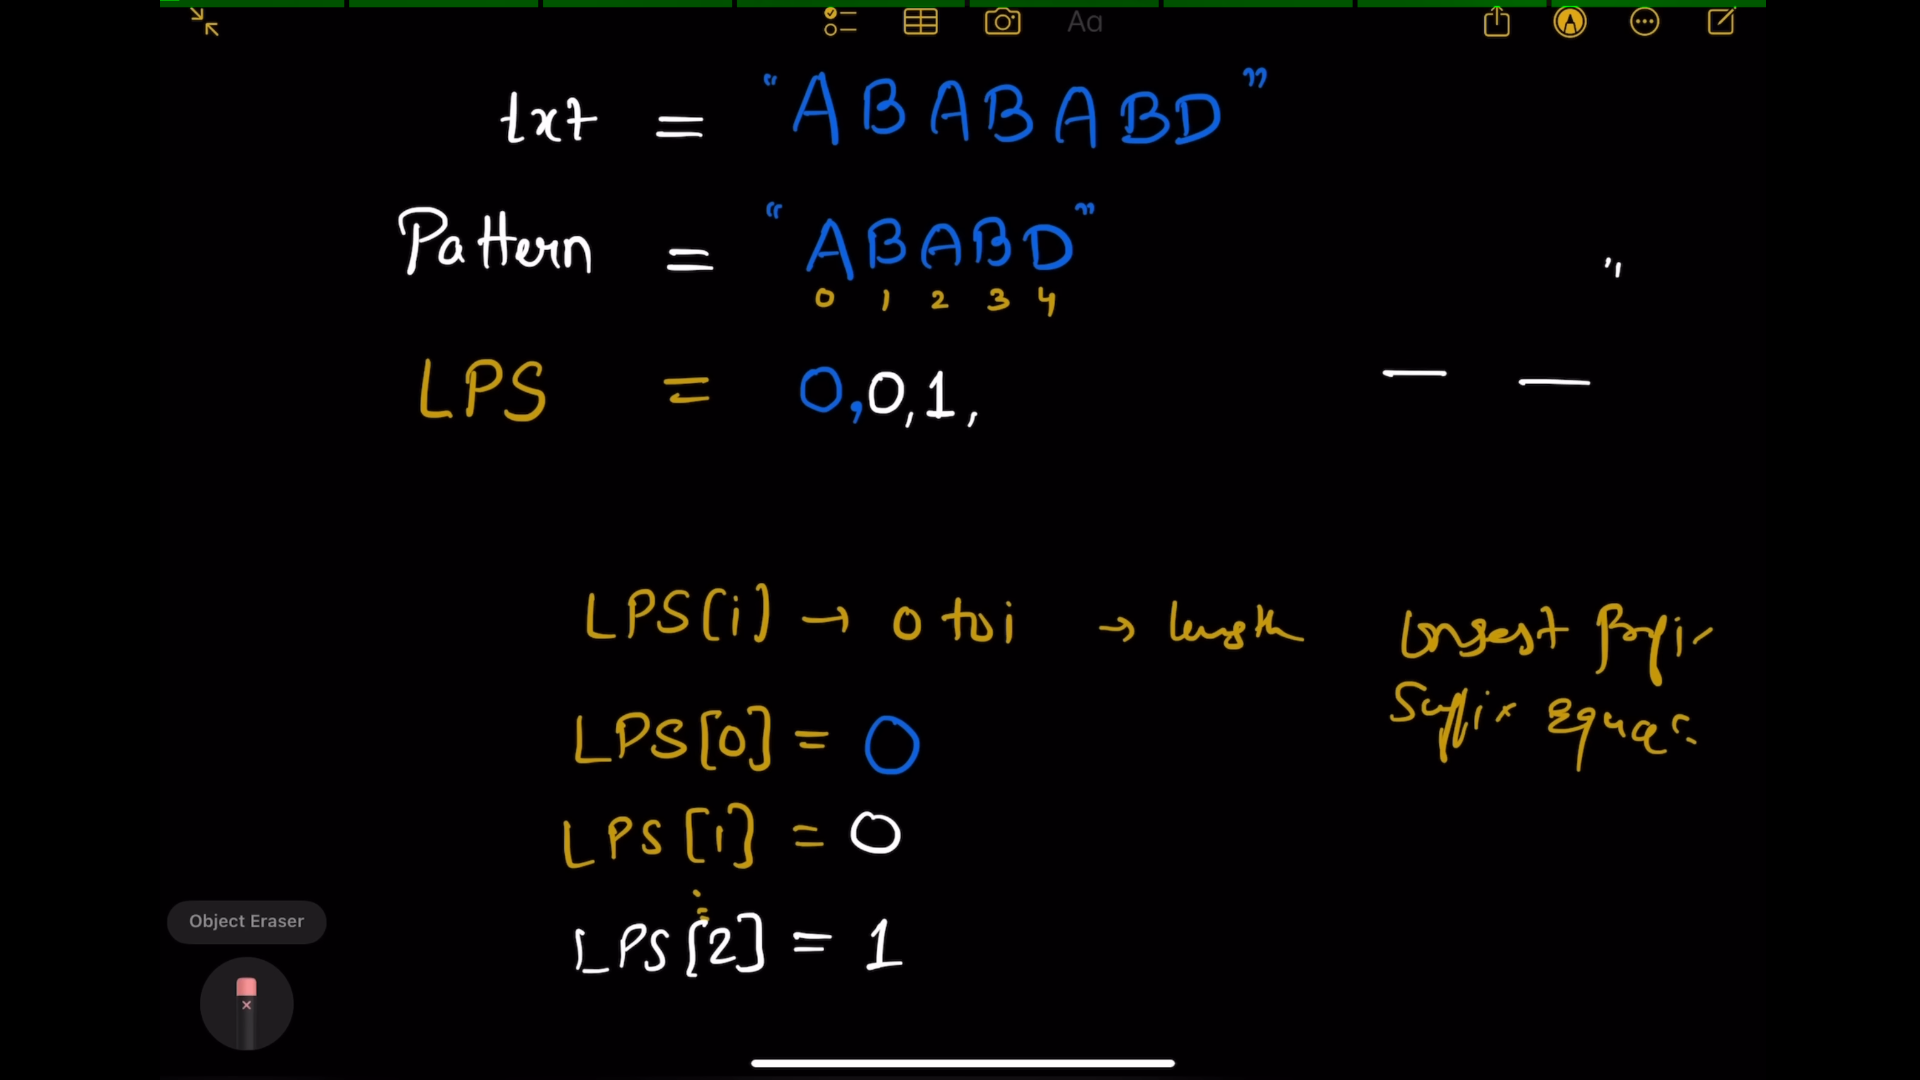 Aa
txt = "ABABABD"
Pattern = "ABABD"
0 1 2 3 4
LPS = 0,0,1,
LPS[i] → 0 to i → length Longest
Suffix
LPS[0] = 0
LPS[1] = 0
LPS[2] = 1
Object Eraser